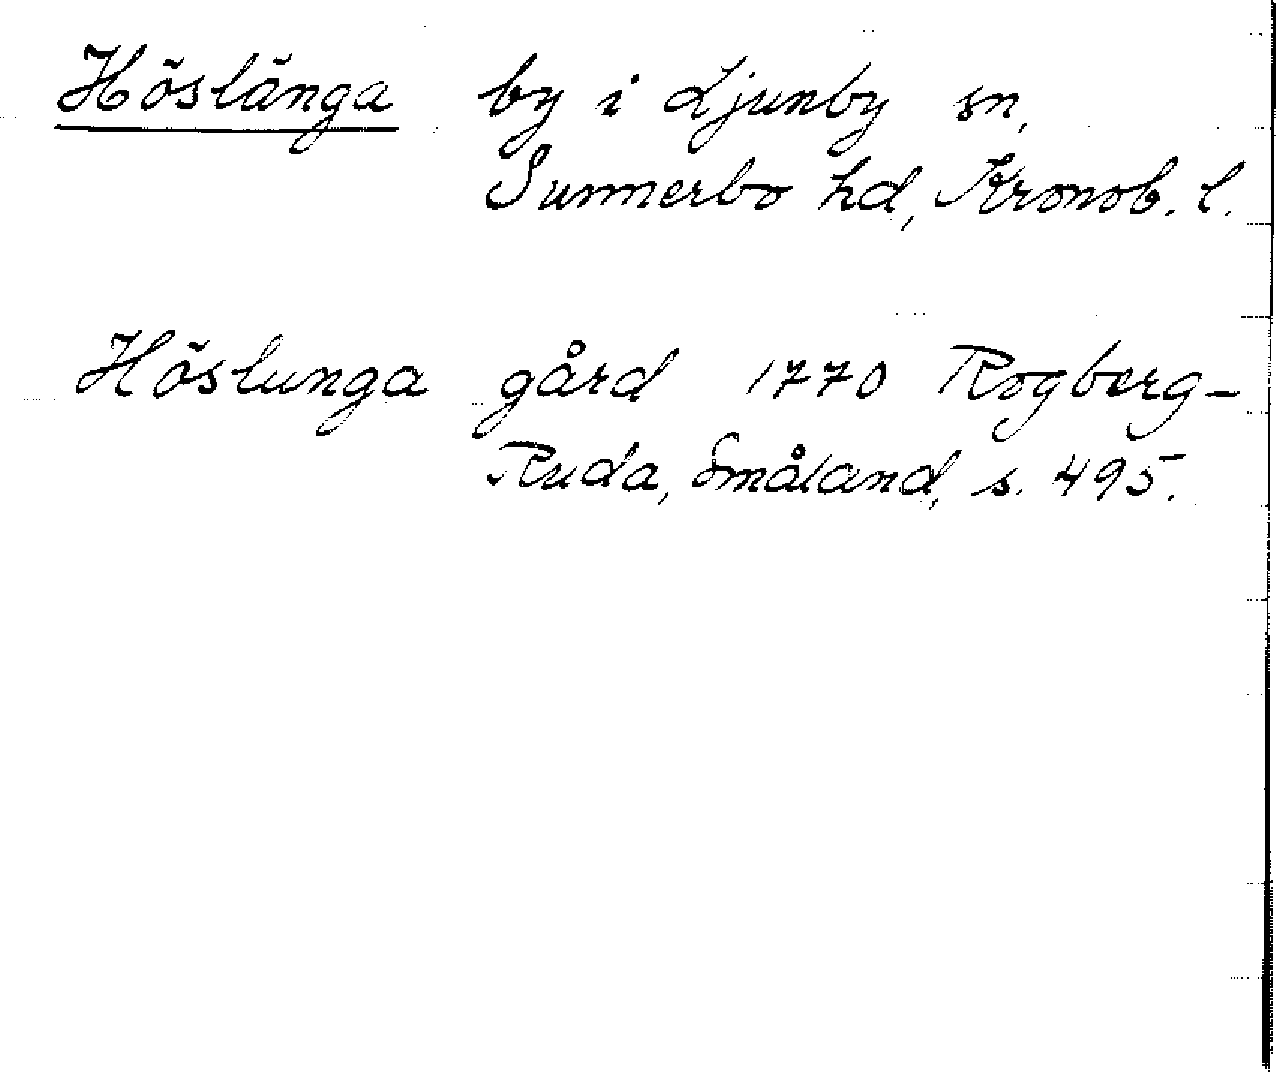 Höslänga by i Ljunby sn,
Sunnerbo hd, Kronob. l.
Höslunga gård 1770 Rogberg-
Ruda, Småland, s. 495.